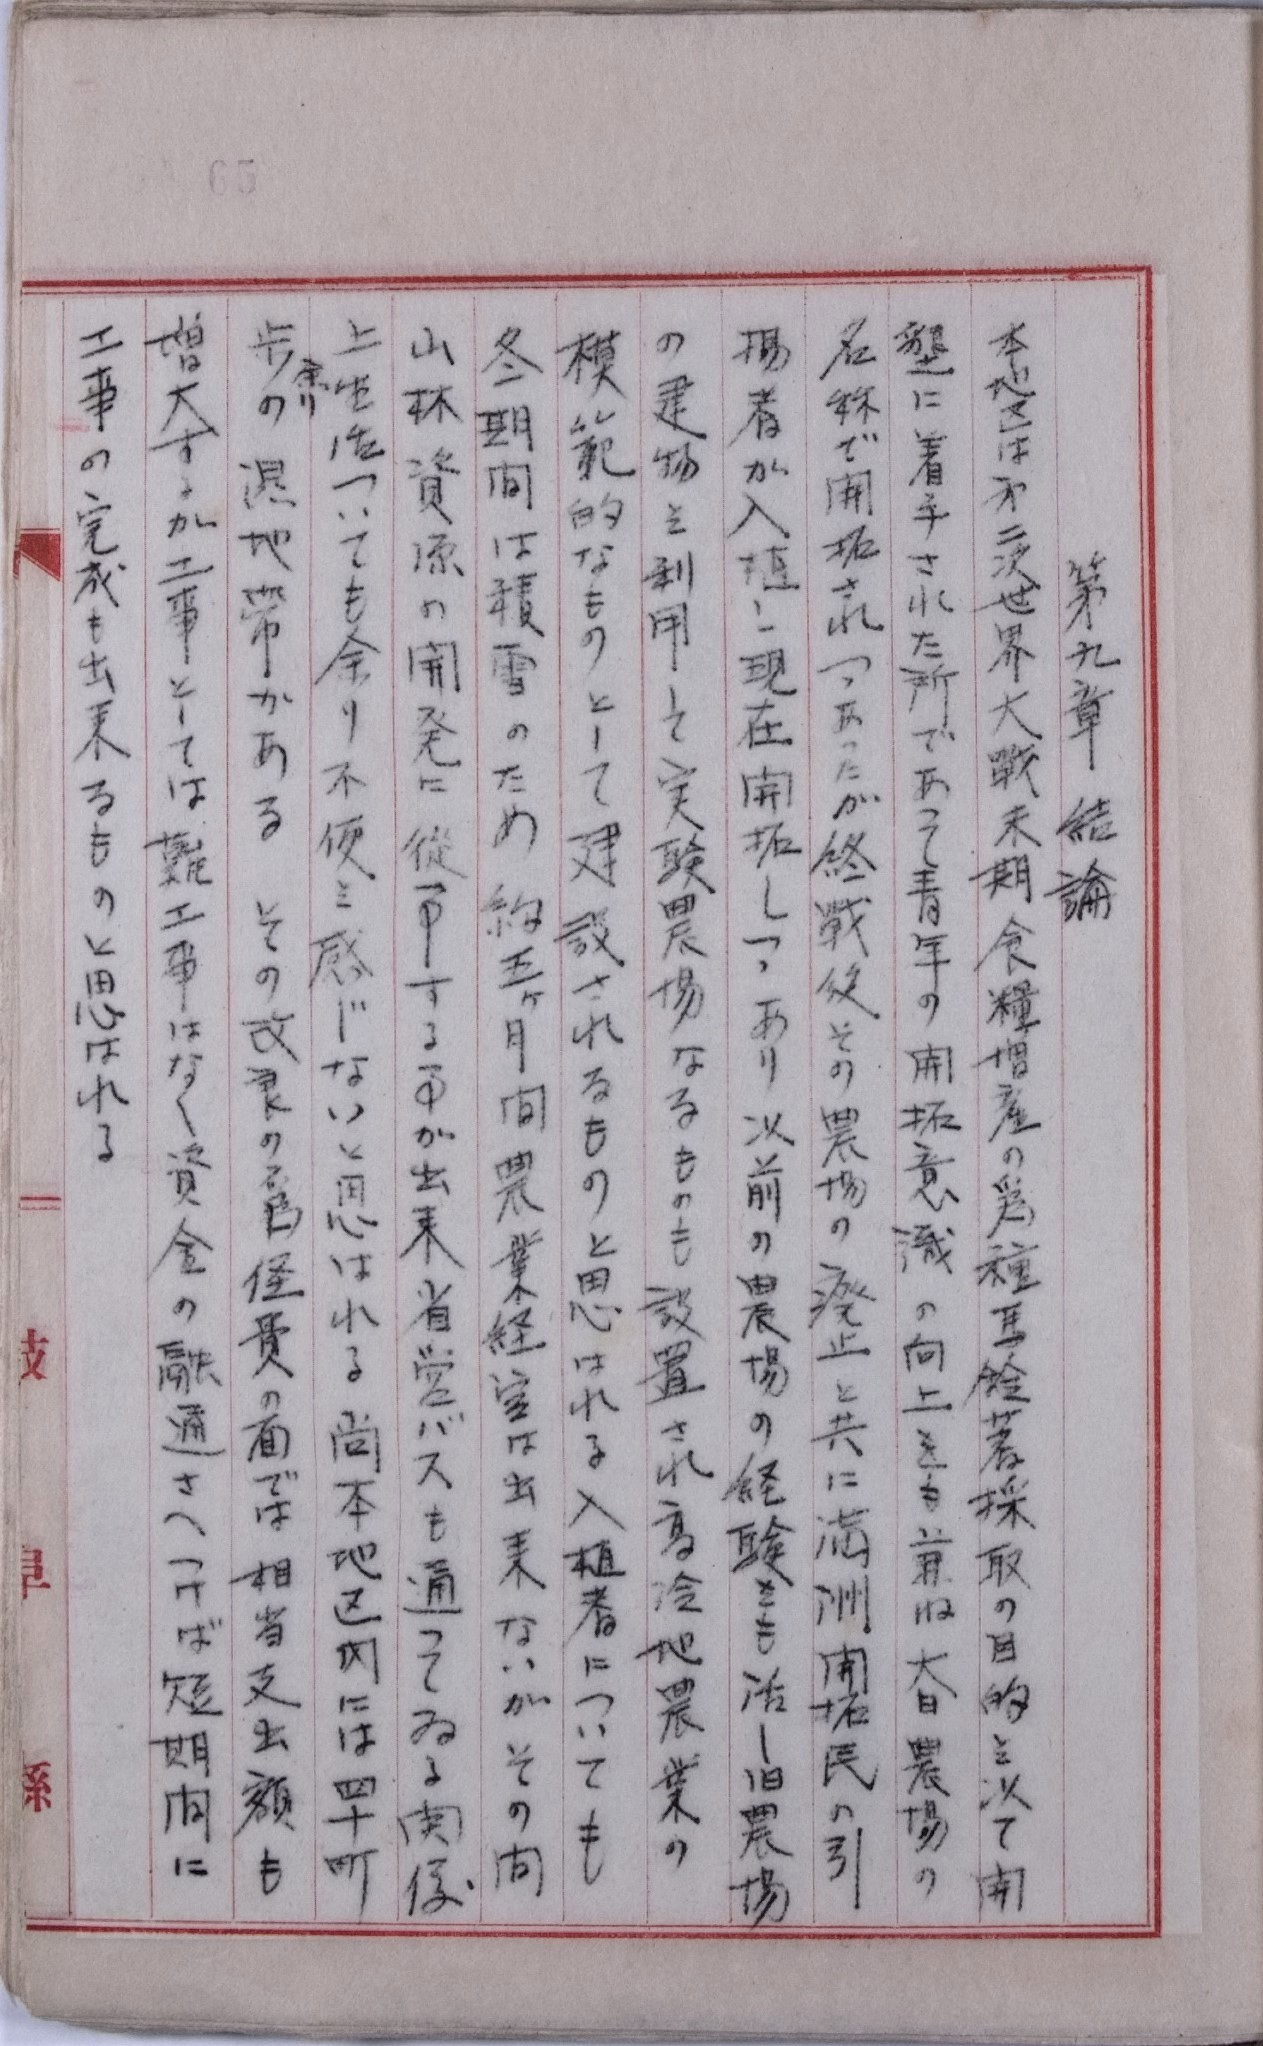 65
第九章 結論
本地区は才二次世界大戦末期食糧増産の爲種馬鈴薯採取の目的を以て開
墾に着手された所であって青年の開拓意識の向上をも兼ね大日農場の
名称で開拓されつゝあったが終戦後その農場の廃止と共に満洲開拓民の引
揚者か入植し現在開拓しつゝあり以前の農場の経験をも活し旧農場
の建物を利用して実験農場なるものも設置され高冷地農業の
模範的なものとして建設されるものと思はれる入植者についても
冬期間は積雪のため約五ヶ月間農業経営は出来ないがその間
山林資源の開発に従事する事か出来省営バスも通ってゐる関係
上生活ついても余り不便を感じないと思はれる尚本地区内には四十町
歩余りの湿地帯かある その改良の爲経費の面では相当支出額も
増大するか工事としては難工事はなく資金の融通さへつけば短期間に
工事の完成も出来るものと思はれる
岐阜縣